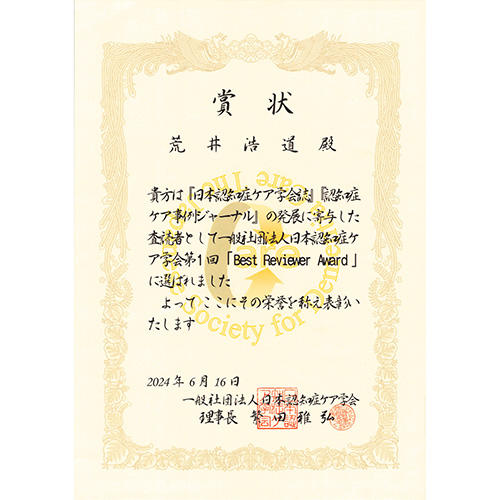 賞状
荒井浩道殿
貴方は『日本認知症ケア学会誌』『認知症
ケア事例ジャーナル』の発展に寄与した
査読者として一般社団法人日本認知症ケ
ア学会第1回「Best Reviewer Award」
に選ばれました
よってここにその栄誉を称え表彰い
たします
2024年6月16日
一般社団法人日本認知症ケア学会
理事長 繁田雅弘